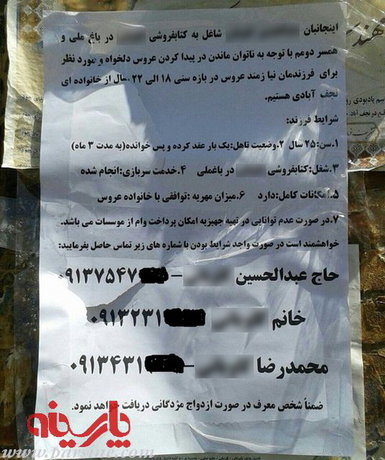 اینجانبان شاغل به کتابفروشی در باغ ملی و
همسر دومم با توجه به ناتوان ماندن در پیدا کردن عروس دلخواه و مورد نظر
برای فرزندمان نیاز مند عروس در بازه سنی ۱۸ الی ۲۲ سال از خانواده ای
نجف آبادی هستیم.
شرایط فرزند:
۱.سن:۲۵ سال ۲.وضعیت تاهل:یک بار عقد کرده و پس خوانده (به مدت ۳ ماه)
۳.شغل:کتابفروشی در باغملی ۴.خدمت سربازی:انجام شده
۵.امکانات کامل:دارد ۶.میزان مهریه :توافقی با خانواده عروس
۷.در صورت عدم توانایی در تهیه جهیزیه امکان پرداخت وام از موسسات می باشد.
خواهشمند است در صورت واجد شرایط بودن با شماره های زیر تماس حاصل بفرمایید:
حاج عبدالحسین - ۰۹۱۳۷۵۴۷
خانم ۰۹۱۳۲۳۱
محمدرضا - ۰۹۱۳۴۳۱
ضمناً شخص معرف در صورت ازدواج مژدگانی دریافت خواهد نمود.
پارسینه